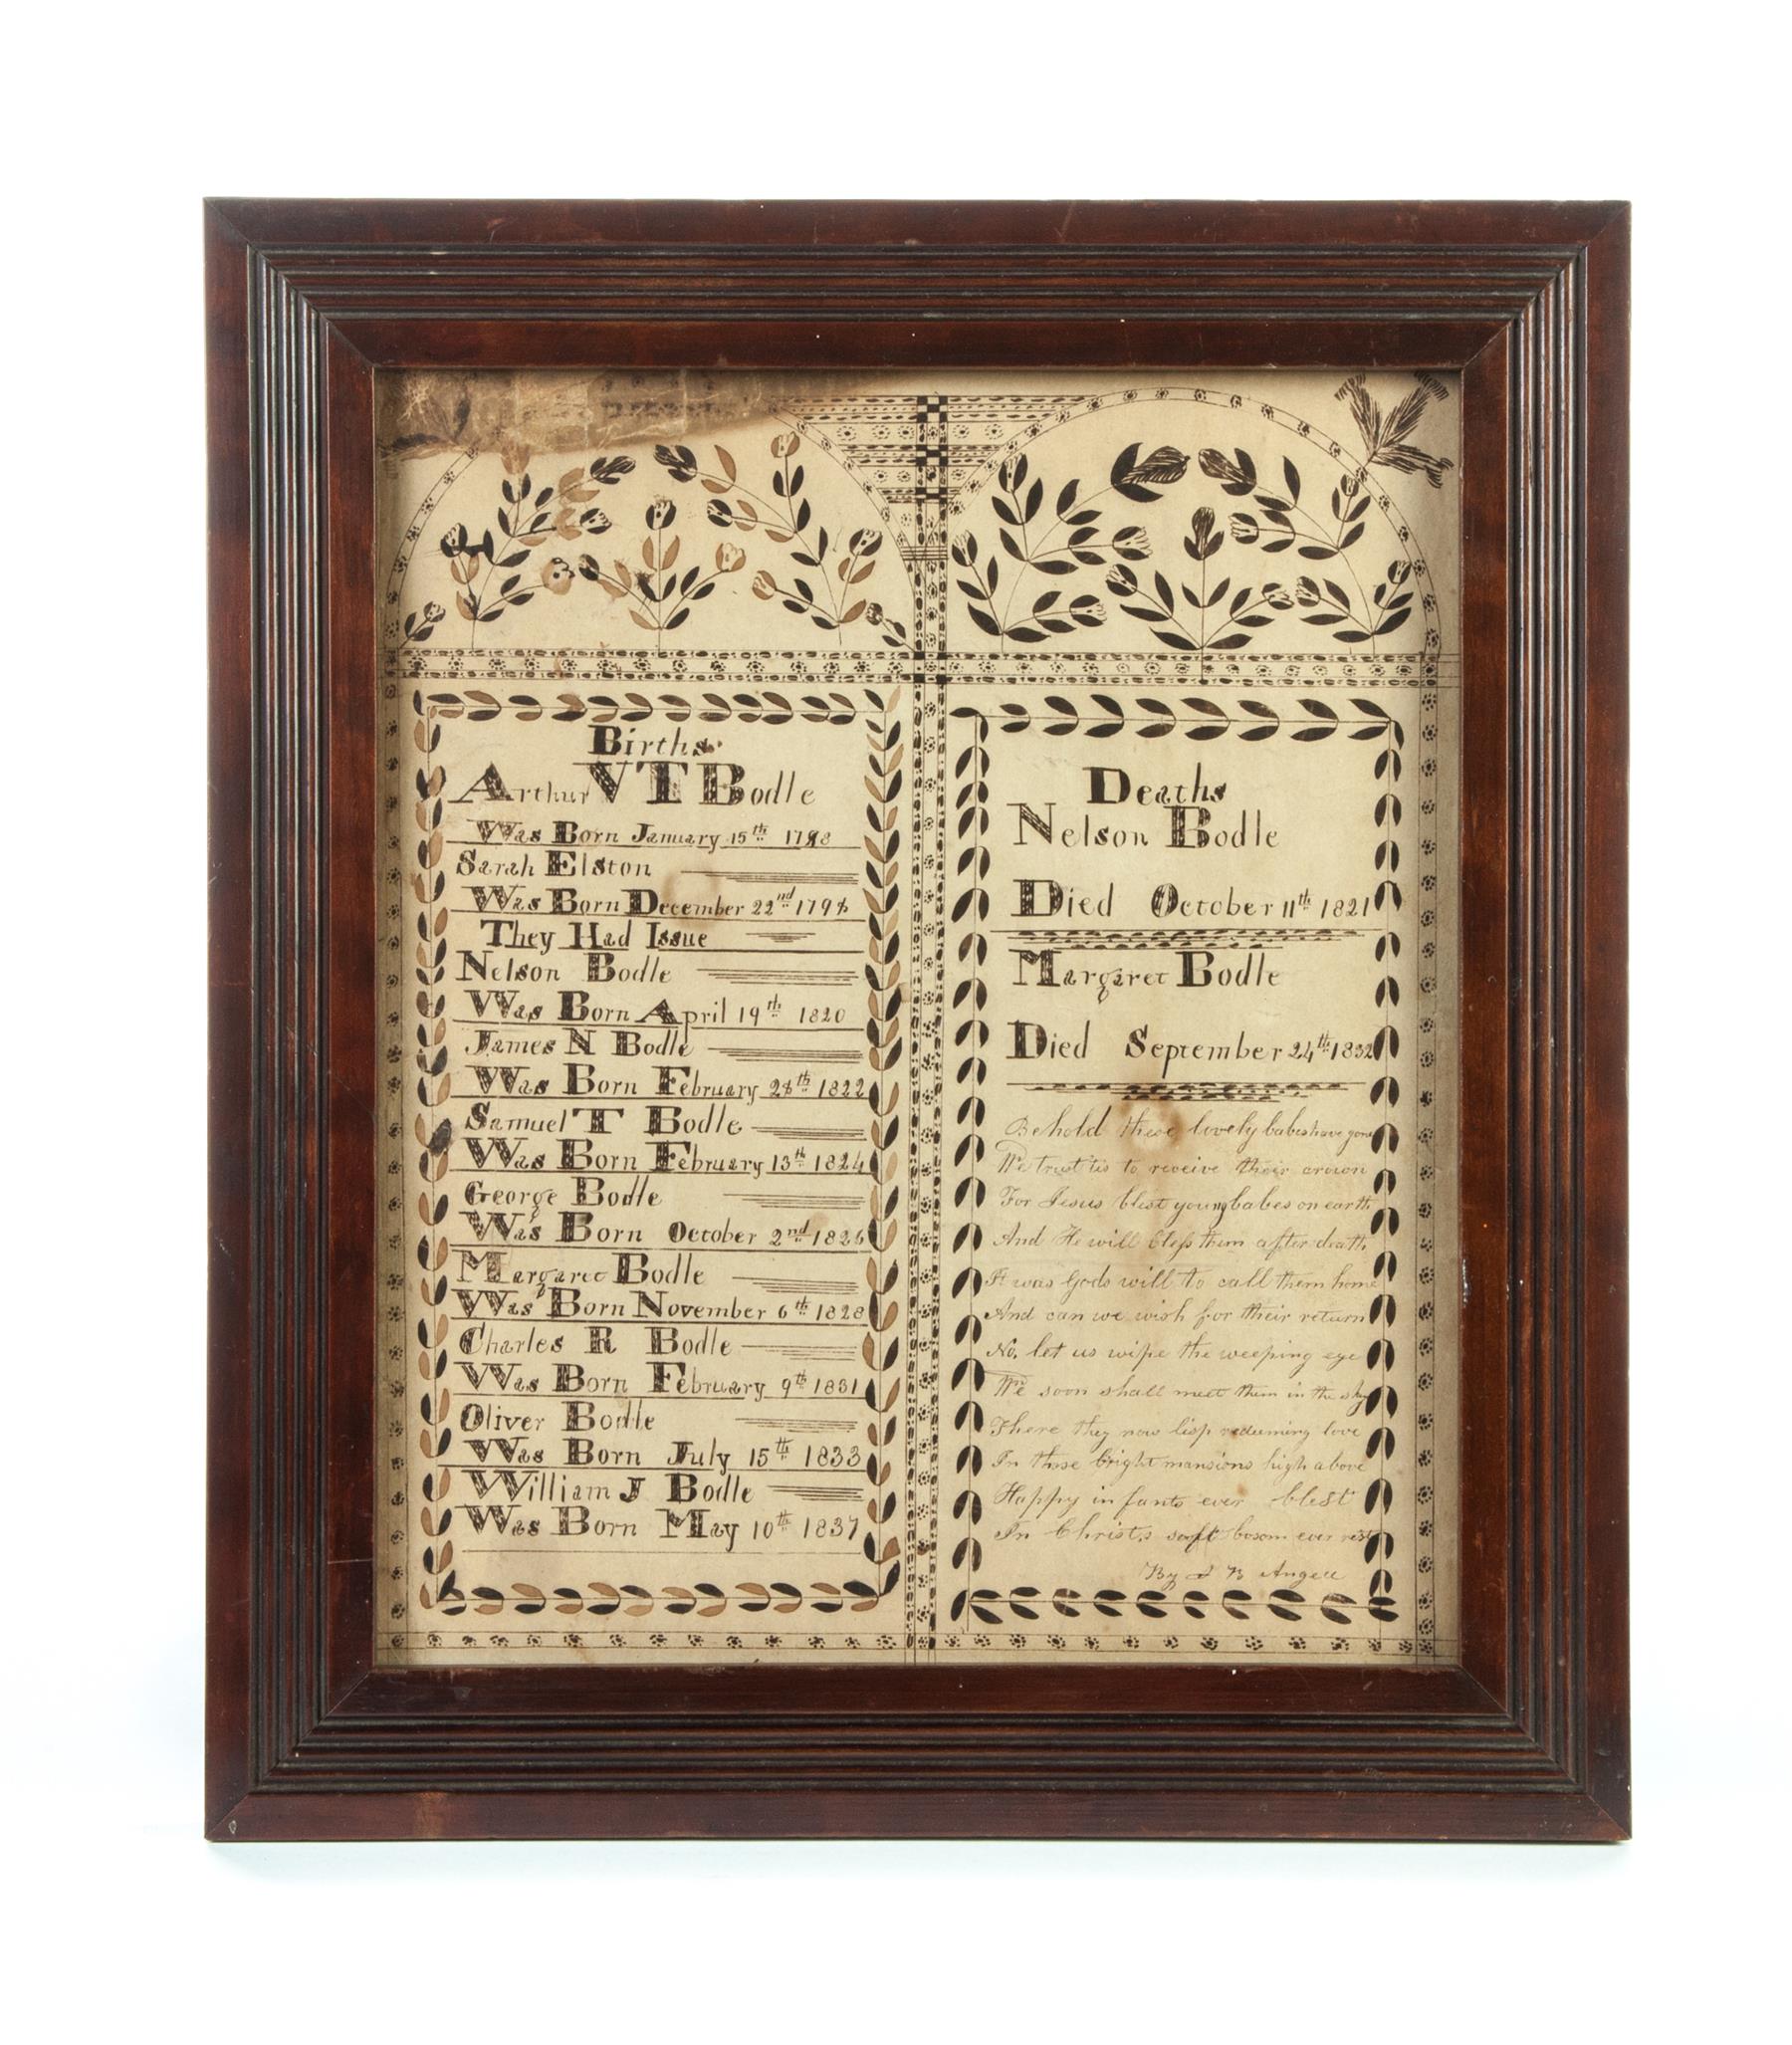 Births
Arthur V T Bodle
Was Born January 15th 1798
Sarah Elston
Was Born December 22nd 1798
They Had Issue
Nelson Bodle
Was Born April 19th 1820
James N Bodle
Was Born February 28th 1822
Samuel T Bodle
Was Born February 13th 1824
George Bodle
Was Born October 2nd 1826
Margaret Bodle
Was Born November 6th 1828
Charles R Bodle
Was Born February 9th 1831
Oliver Bodle
Was Born July 15th 1833
William J Bodle
Was Born May 10th 1837
Deaths
Nelson Bodle
Died October 11th 1821
Margaret Bodle
Died September 24th 1832
Behold these lovely babes have gone
We trust tis to receive their crown
For Jesus blest young babes on earth
And He will bless them after death
It was Gods will to call them home
And can we wish for their return
No, let us wipe the weeping eye
We soon shall meet them in the sky
There they now lisp redeeming love
In those bright mansions high above
Happy infants ever blest
In Christ,s soft bosom ever rest
By B Angell